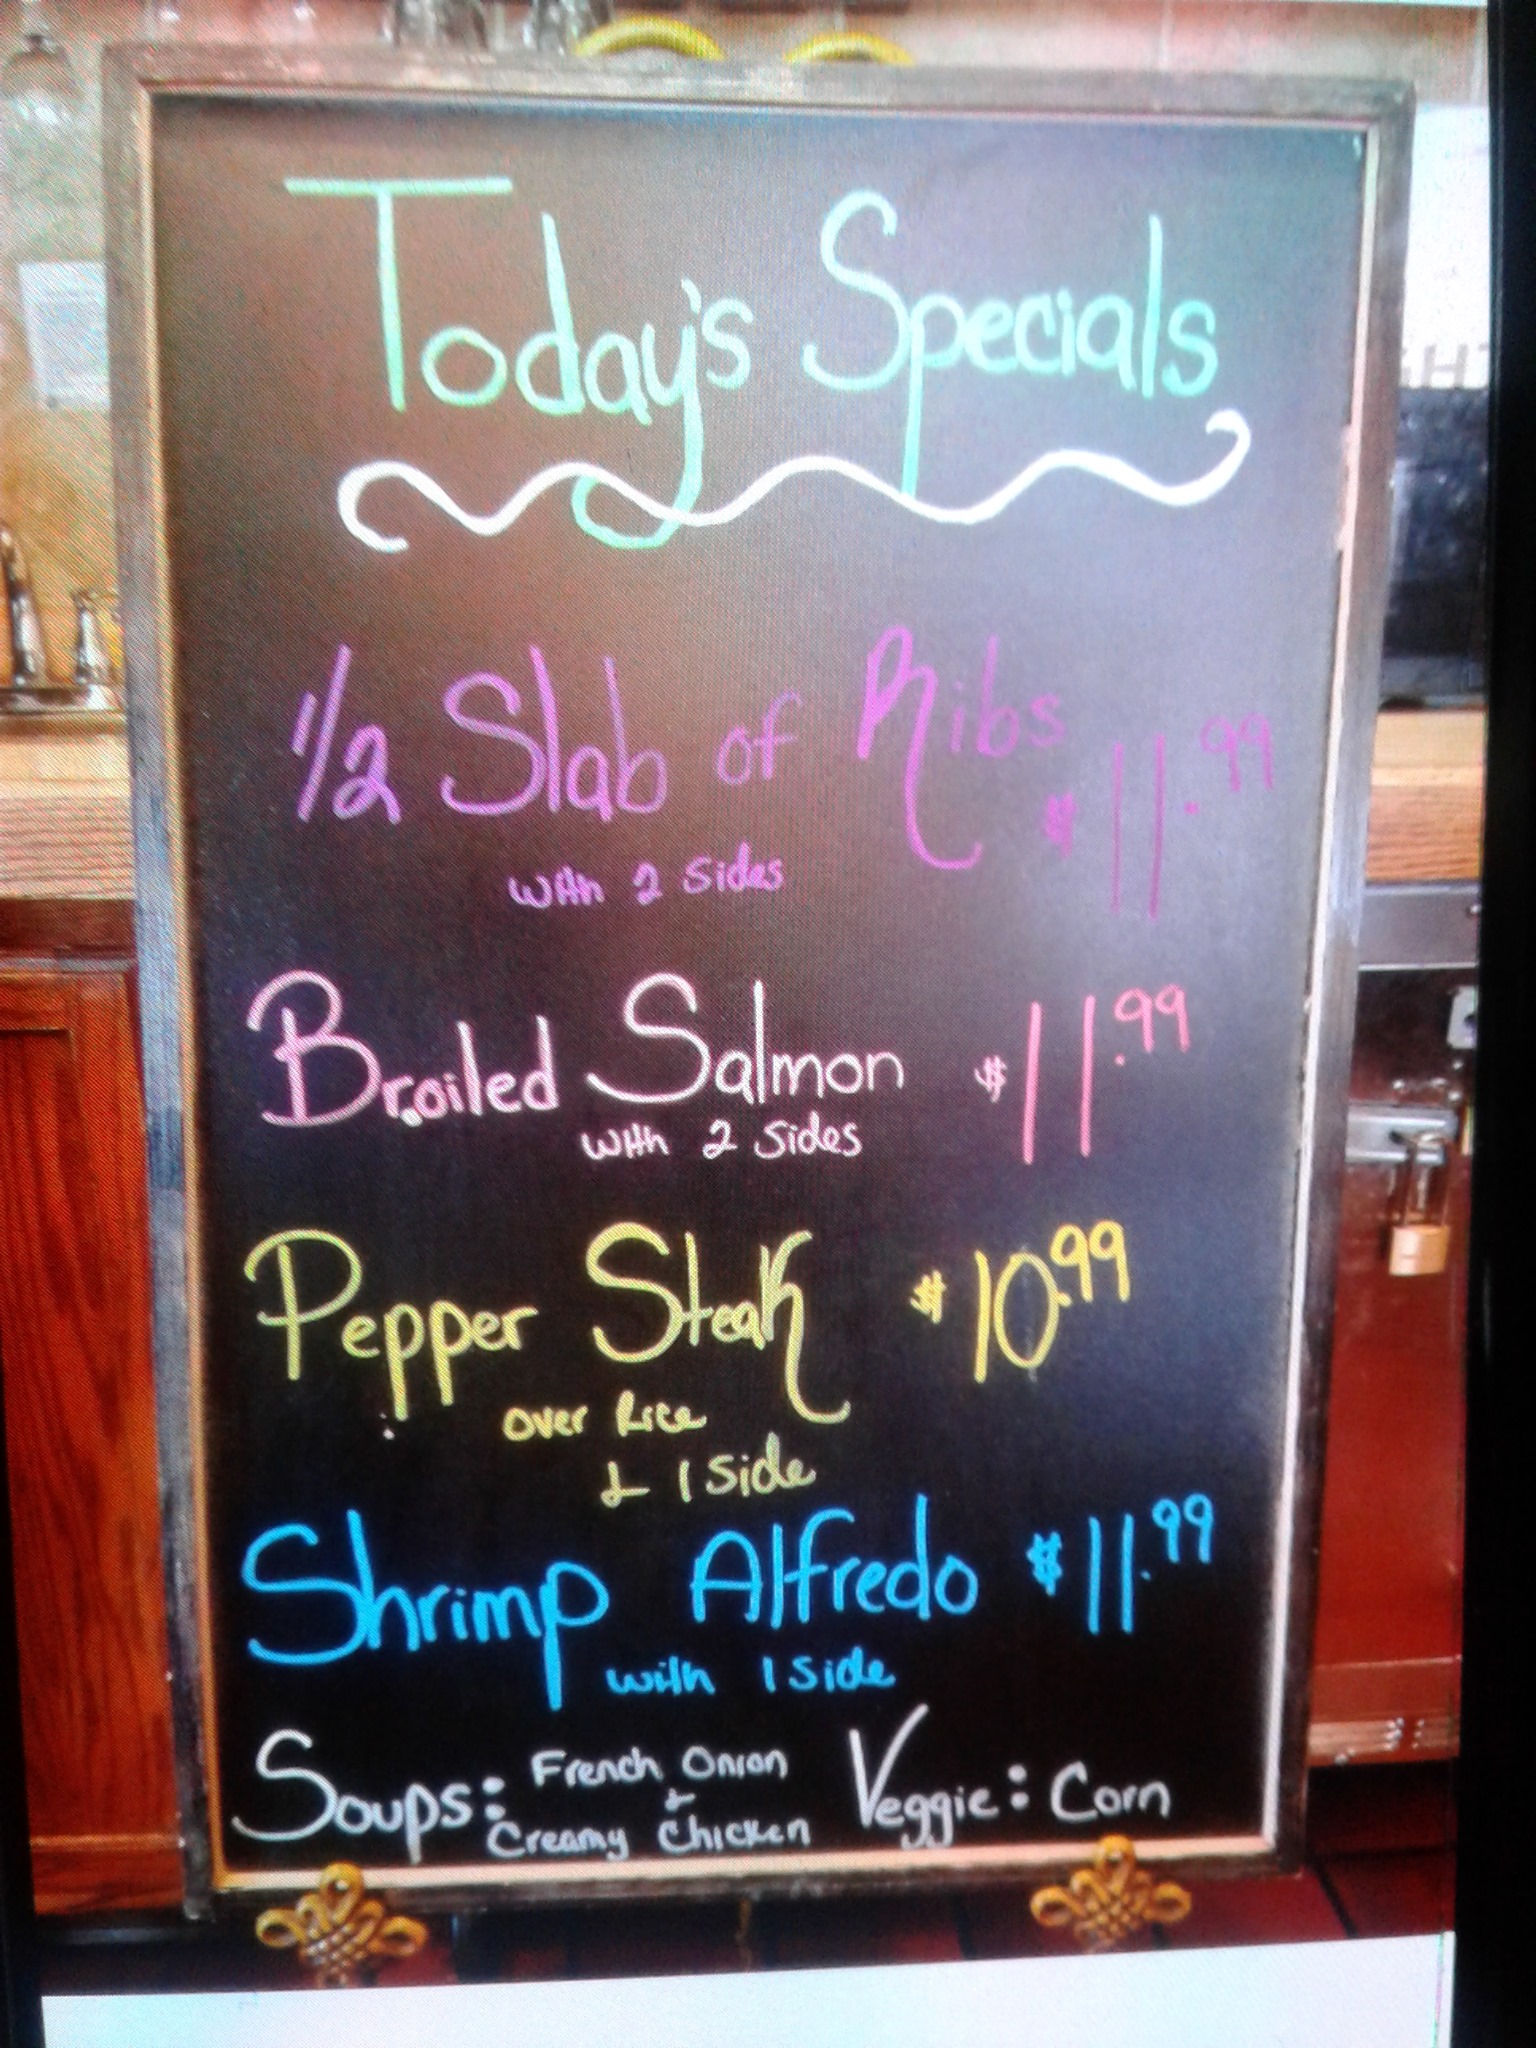 Today's Specials
1/2 Slab of Ribs $11.99
with 2 sides
Broiled Salmon $11.99
with 2 sides
Pepper Steak $10.99
over Rice
& 1 side
Shrimp Alfredo $11.99
with 1 side
Soups: French Onion
&
Creamy Chicken
Veggie: Corn